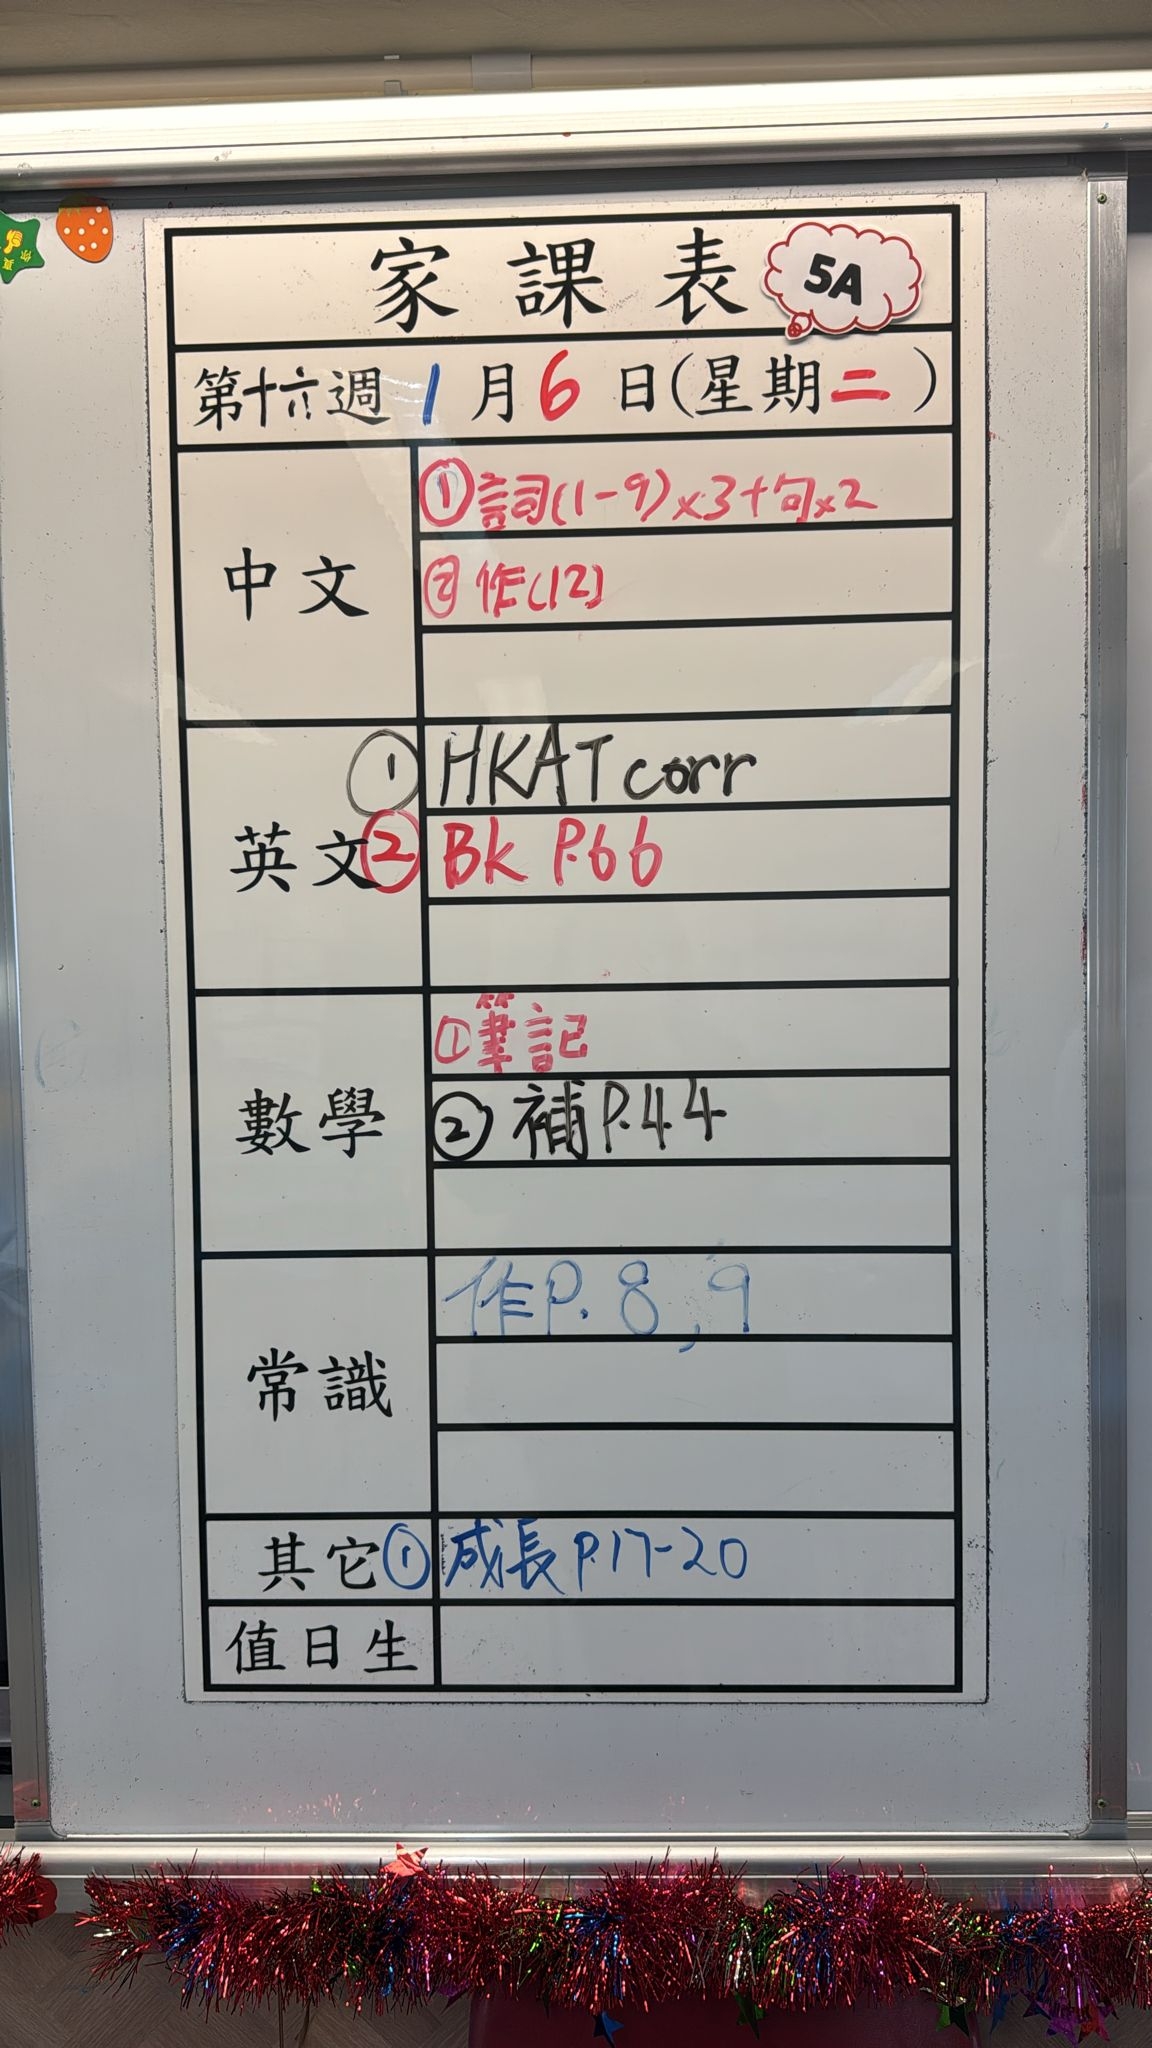 家課表 5A
第十六週 1月6日(星期二)
中文
①詞(1-9)×3+句×2
②作(12)
英文
①HKAT corr
②Bk P.66
數學
①筆記
②補P.44
常識
作P.8,9
其它
①成長P.17-20
值日生